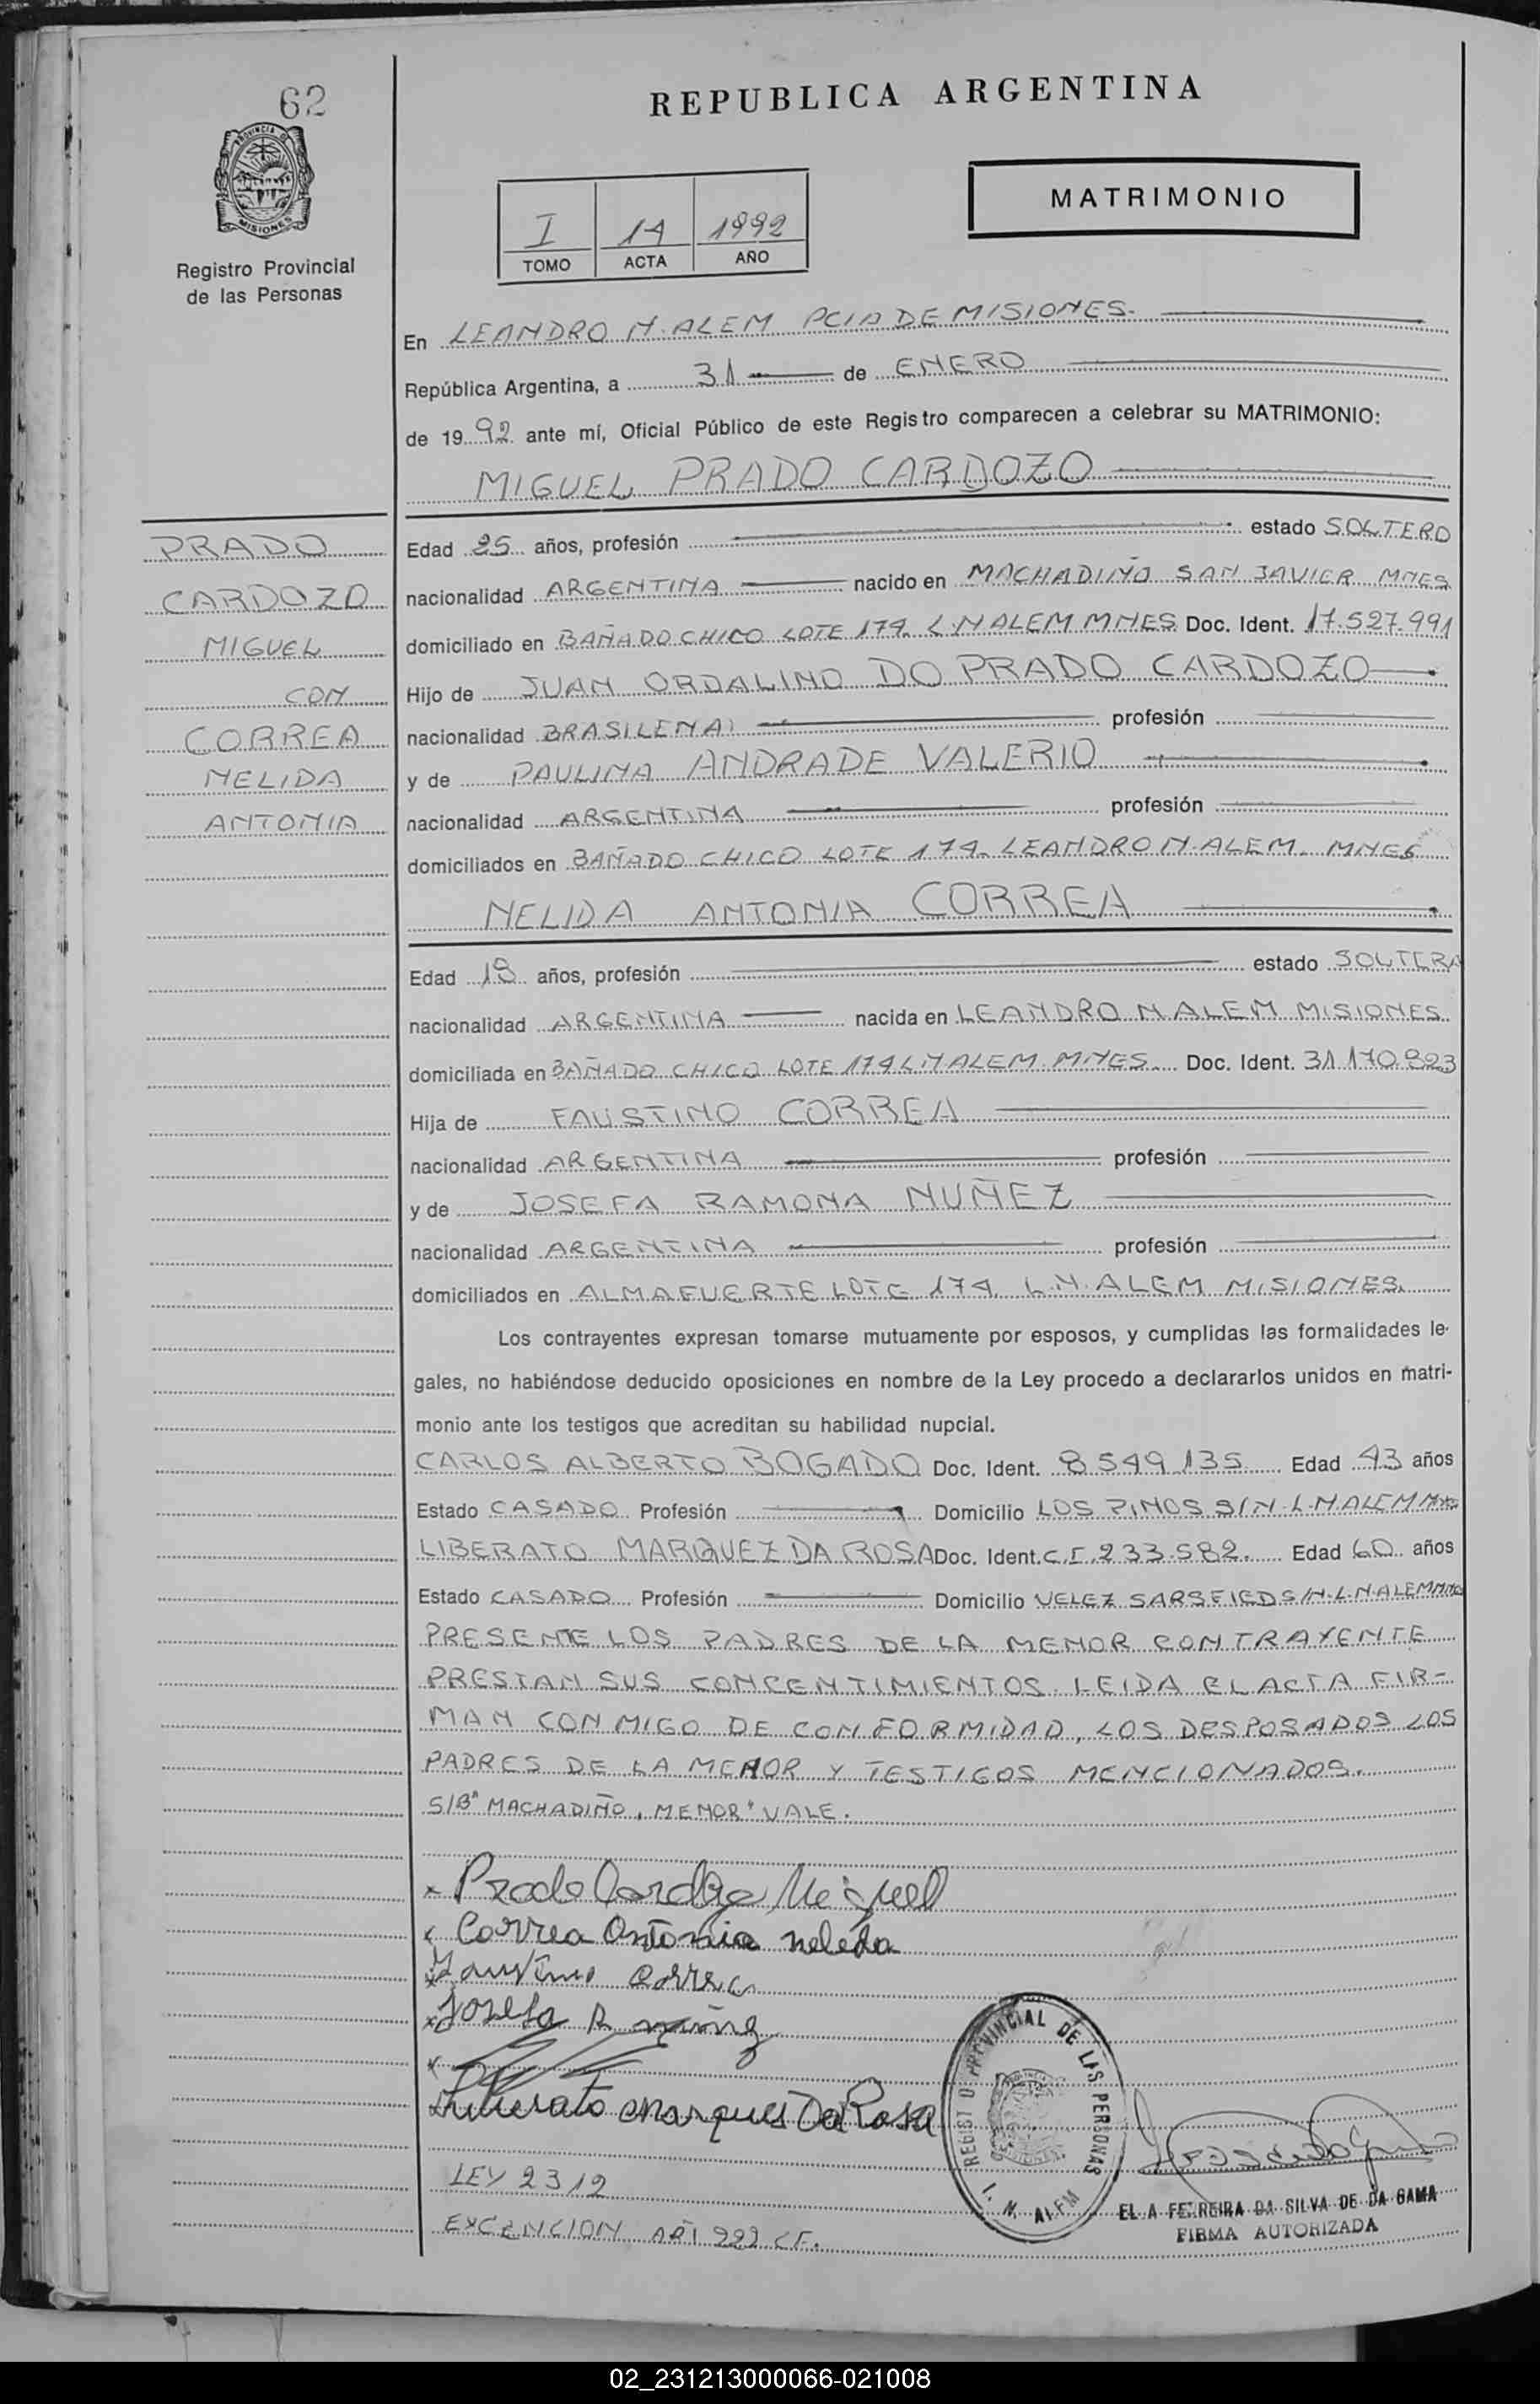 62
PROVINCIA DE
MISIONES
Registro Provincial
de las Personas
REPUBLICA ARGENTINA
MATRIMONIO
I 14 1992
TOMO ACTA AÑO
En LEANDRO N. ALEM PCIA DE MISIONES.
República Argentina, a 31 de ENERO
de 1992 ante mí, Oficial Público de este Registro comparecen a celebrar su MATRIMONIO:
MIGUEL PRADO CARDOZO
PRADO
CARDOZO
MIGUEL
CON
CORREA
NELIDA
ANTONIA
Edad 25 años, profesión estado SOLTERO
nacionalidad ARGENTINA nacido en MACHADIÑO SAN JAVIER MNES
domiciliado en BAÑADO CHICO LOTE 174. L.N ALEM MNES Doc. Ident. 17.527.991
Hijo de JUAN ORDALINO DO PRADO CARDOZO
nacionalidad BRASILENA profesión
y de PAULINA ANDRADE VALERIO
nacionalidad ARGENTINA profesión
domiciliados en BAÑADO CHICO LOTE 174. LEANDRO N. ALEM. MNES
NELIDA ANTONIA CORREA
Edad años, profesión estado SOLTERA
nacionalidad ARGENTINA nacida en LEANDRO N ALEM MISIONES
domiciliada en BAÑADO CHICO LOTE 174 L N ALEM. MNES. Doc. Ident. 31.170.823
Hija de FAUSTINO CORREA
nacionalidad ARGENTINA profesión
y de JOSEFA RAMONA NUÑEZ
nacionalidad ARGENTINA profesión
domiciliados en ALMAFUERTE LOTE 174. L.N. ALEM MISIONES.
Los contrayentes expresan tomarse mutuamente por esposos, y cumplidas las formalidades le-
gales, no habiéndose deducido oposiciones en nombre de la Ley procedo a declararlos unidos en matri-
monio ante los testigos que acreditan su habilidad nupcial.
CARLOS ALBERTO BOGADO Doc. Ident. 8.549.135 Edad 43 años
Estado CASADO Profesión Domicilio LOS PINOS S/N. L.N ALEM
LIBERATO MARQUEZ DA ROSA Doc. Ident. C.I. 233.582. Edad 60 años
Estado CASADO Profesión Domicilio VELEZ SARSFIED S/N. L.N. ALEM
PRESENTE LOS PADRES DE LA MENOR CONTRAYENTE
PRESTAN SUS CONCENTIMIENTOS. LEIDA EL ACTA FIR-
MAN CON MIGO DE CONFORMIDAD, LOS DESPOSADOS LOS
PADRES DE LA MENOR Y TESTIGOS MENCIONADOS.
S/Bº MACHADIÑO, MENOR" VALE.
x Prado Cardozo Miguel
x Correa Antonia nelida
x Faustino Correa
x Josefa R nuñez
x
Liberato Marques Da Rosa
REGIST O PROVINCIAL DE LAS PERSONAS
L. N. ALEM
LEY 2312
EXCENCION ART 222 C.F.
EL A FERREIRA DA SILVA DE DA GAMA
FIRMA AUTORIZADA
02_231213000066-021008